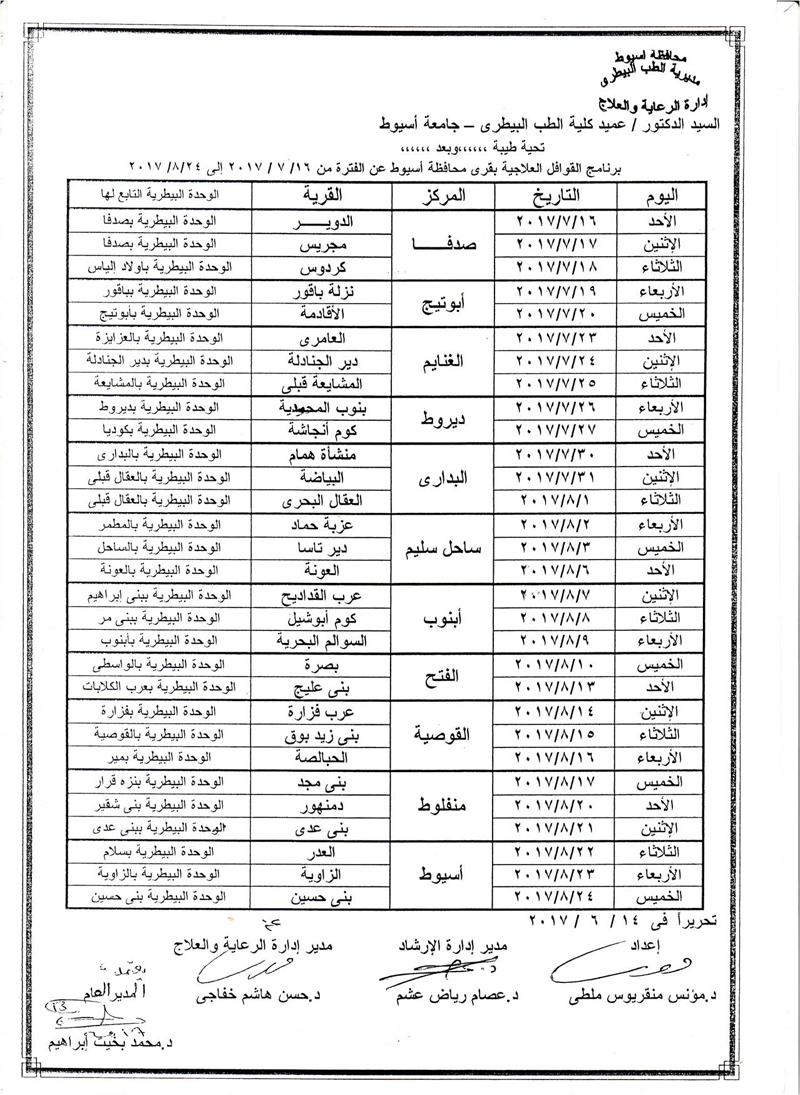 محافظة اسيوط
مديرية الطب البيطرى
إدارة الرعاية والعلاج
السيد الدكتور / عميد كلية الطب البيطرى – جامعة أسيوط
تحية طيبة ،،،،،،وبعد ،،،،،،
برنامج القوافل العلاجية بقرى محافظة أسيوط عن الفترة من ١٦/ ٧ / ٢٠١٧ إلى ٢٤/ ٨/ ٢٠١٧
اليوم التاريخ المركز القرية الوحدة البيطرية التابع لها
الأحد ٢٠١٧/٧/١٦ صدفا الدوير الوحدة البيطرية بصدفا
الإثنين ٢٠١٧/٧/١٧ مجريس الوحدة البيطرية بصدفا
الثلاثاء ٢٠١٧/٧/١٨ كردوس الوحدة البيطرية باولاد إلياس
الأربعاء ٢٠١٧/٧/١٩ أبوتيج نزلة باقور الوحدة البيطرية بباقور
الخميس ٢٠١٧/٧/٢٠ الأقادمة الوحدة البيطرية بأبوتيج
الأحد ٢٠١٧/٧/٢٣ الغنايم العامرى الوحدة البيطرية بالعزايزة
الإثنين ٢٠١٧/٧/٢٤ دير الجنادلة الوحدة البيطرية بدير الجنادلة
الثلاثاء ٢٠١٧/٧/٢٥ المشايعة قبلى الوحدة البيطرية بالمشايعة
الأربعاء ٢٠١٧/٧/٢٦ ديروط بنوب المحمودية الوحدة البيطرية بديروط
الخميس ٢٠١٧/٧/٢٧ كوم أنجاشة الوحدة البيطرية بكوديا
الأحد ٢٠١٧/٧/٣٠ البدارى منشأة همام الوحدة البيطرية بالبدارى
الإثنين ٢٠١٧/٧/٣١ البياضة الوحدة البيطرية بالعقال قبلى
الثلاثاء ٢٠١٧/٨/١ العقال البحرى الوحدة البيطرية بالعقال قبلى
الأربعاء ٢٠١٧/٨/٢ ساحل سليم عزبة حماد الوحدة البيطرية بالمطمر
الخميس ٢٠١٧/٨/٣ دير تاسا الوحدة البيطرية بالساحل
الأحد ٢٠١٧/٨/٦ العونة الوحدة البيطرية بالعونة
الإثنين ٢٠١٧/٨/٧ أبنوب عرب القداديح الوحدة البيطرية ببنى إبراهيم
الثلاثاء ٢٠١٧/٨/٨ كوم أبوشيل الوحدة البيطرية ببنى مر
الأربعاء ٢٠١٧/٨/٩ السوالم البحرية الوحدة البيطرية بأبنوب
الخميس ٢٠١٧/٨/١٠ الفتح بصرة الوحدة البيطرية بالواسطى
الأحد ٢٠١٧/٨/١٣ بنى عليج الوحدة البيطرية بعرب الكلابات
الإثنين ٢٠١٧/٨/١٤ القوصية عرب فزارة الوحدة البيطرية بفزارة
الثلاثاء ٢٠١٧/٨/١٥ بنى زيد بوق الوحدة البيطرية بالقوصية
الأربعاء ٢٠١٧/٨/١٦ الحبالصة الوحدة البيطرية بمير
الخميس ٢٠١٧/٨/١٧ منفلوط بنى مجد الوحدة البيطرية بنزه قرار
الأحد ٢٠١٧/٨/٢٠ دمنهور الوحدة البيطرية بنى شقير
الإثنين ٢٠١٧/٨/٢١ بنى عدى الوحدة البيطرية ببنى عدى
الثلاثاء ٢٠١٧/٨/٢٢ أسيوط العدر الوحدة البيطرية بسلام
الأربعاء ٢٠١٧/٨/٢٣ الزاوية الوحدة البيطرية بالزاوية
الخميس ٢٠١٧/٨/٢٤ بنى حسين الوحدة البيطرية بنى حسين
تحريراً فى ١٤ / ٦ / ٢٠١٧
إعداد مدير إدارة الإرشاد مدير إدارة الرعاية والعلاج
المدير العام
د.مؤنس منقريوس ملطى د.عصام رياض عشم د.حسن هاشم خفاجى
د.محمد بخيت إبراهيم